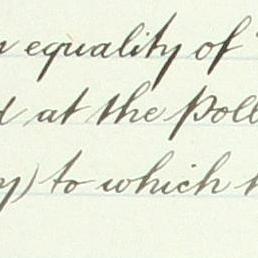 equality of
at the Poll
to which